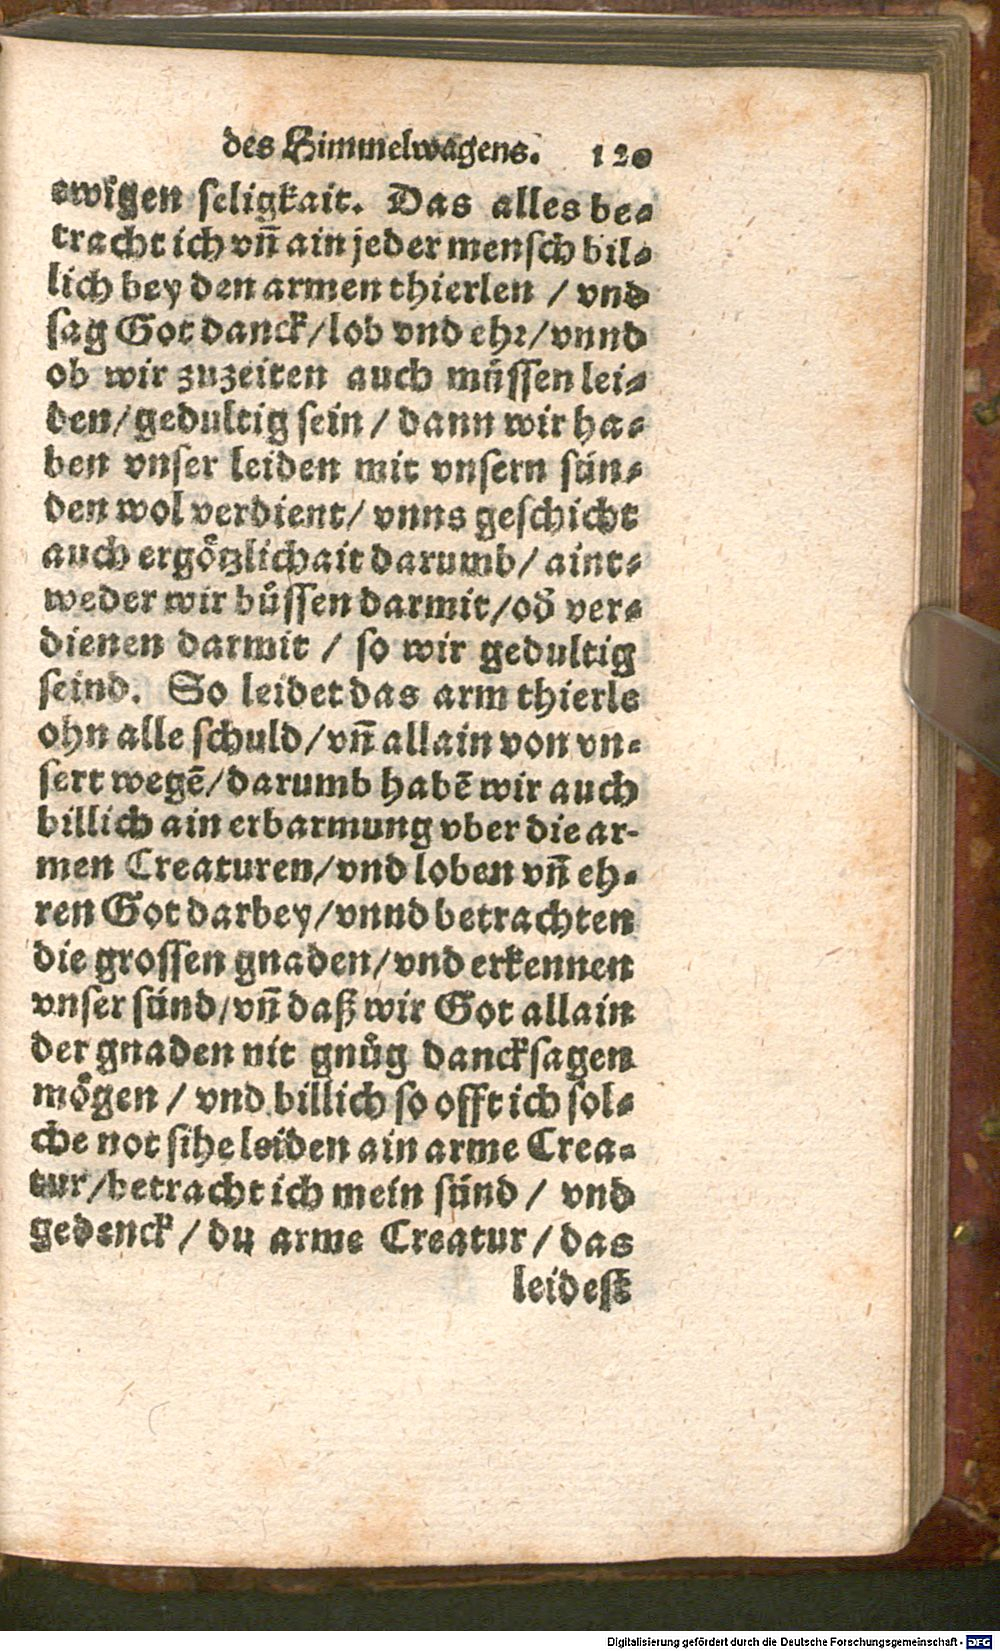 des Himmelwagens. 120
ewigen seligkait. Das alles be⸗
tracht ich vñ ain jeder mensch bil⸗
lich bey den armen thierlen / vnd
sag Got danck / lob vnd ehꝛ / vnnd
ob wir zuzeiten auch müssen lei⸗
den / gedultig sein / dann wir ha⸗
ben vnser leiden mit vnsern sün⸗
den wol verdient / vnns geschicht
auch ergötzlichait darumb / aint⸗
weder wir bůssen darmit / od̕ ver⸗
dienen darmit / so wir gedultig
seind. So leidet das arm thierle
ohn alle schuld / vñ allain von vn⸗
sert wegē / darumb habē wir auch
billich ain erbarmung vber die ar-
men Creaturen / vnd loben vñ eh⸗
ren Got darbey / vnnd betrachten
die grossen gnaden / vnd erkennen
vnser sünd / vñ daß wir Got allain
der gnaden nit gnůg dancksagen
mögen / vnd billich so offt ich sol⸗
che not sihe leiden ain arme Crea⸗
tur / betracht ich mein sünd / vnd
gedenck / du arme Creatur / das
leidest
Digitalisierung gefördert durch die Deutsche Forschungsgemeinschaft - DFG